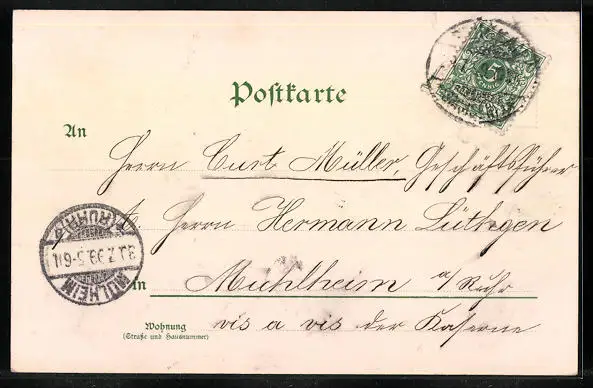 Postkarte
5
An
Herrn Curt Müller, Geschäftsführer
Herrn Hermann Lüthgen
in Mühlheim a/ Ruhr
Wohnung
(Straße und Hausnummer)
vis a vis der Kaserne
MÜLHEIM
(RUHR)